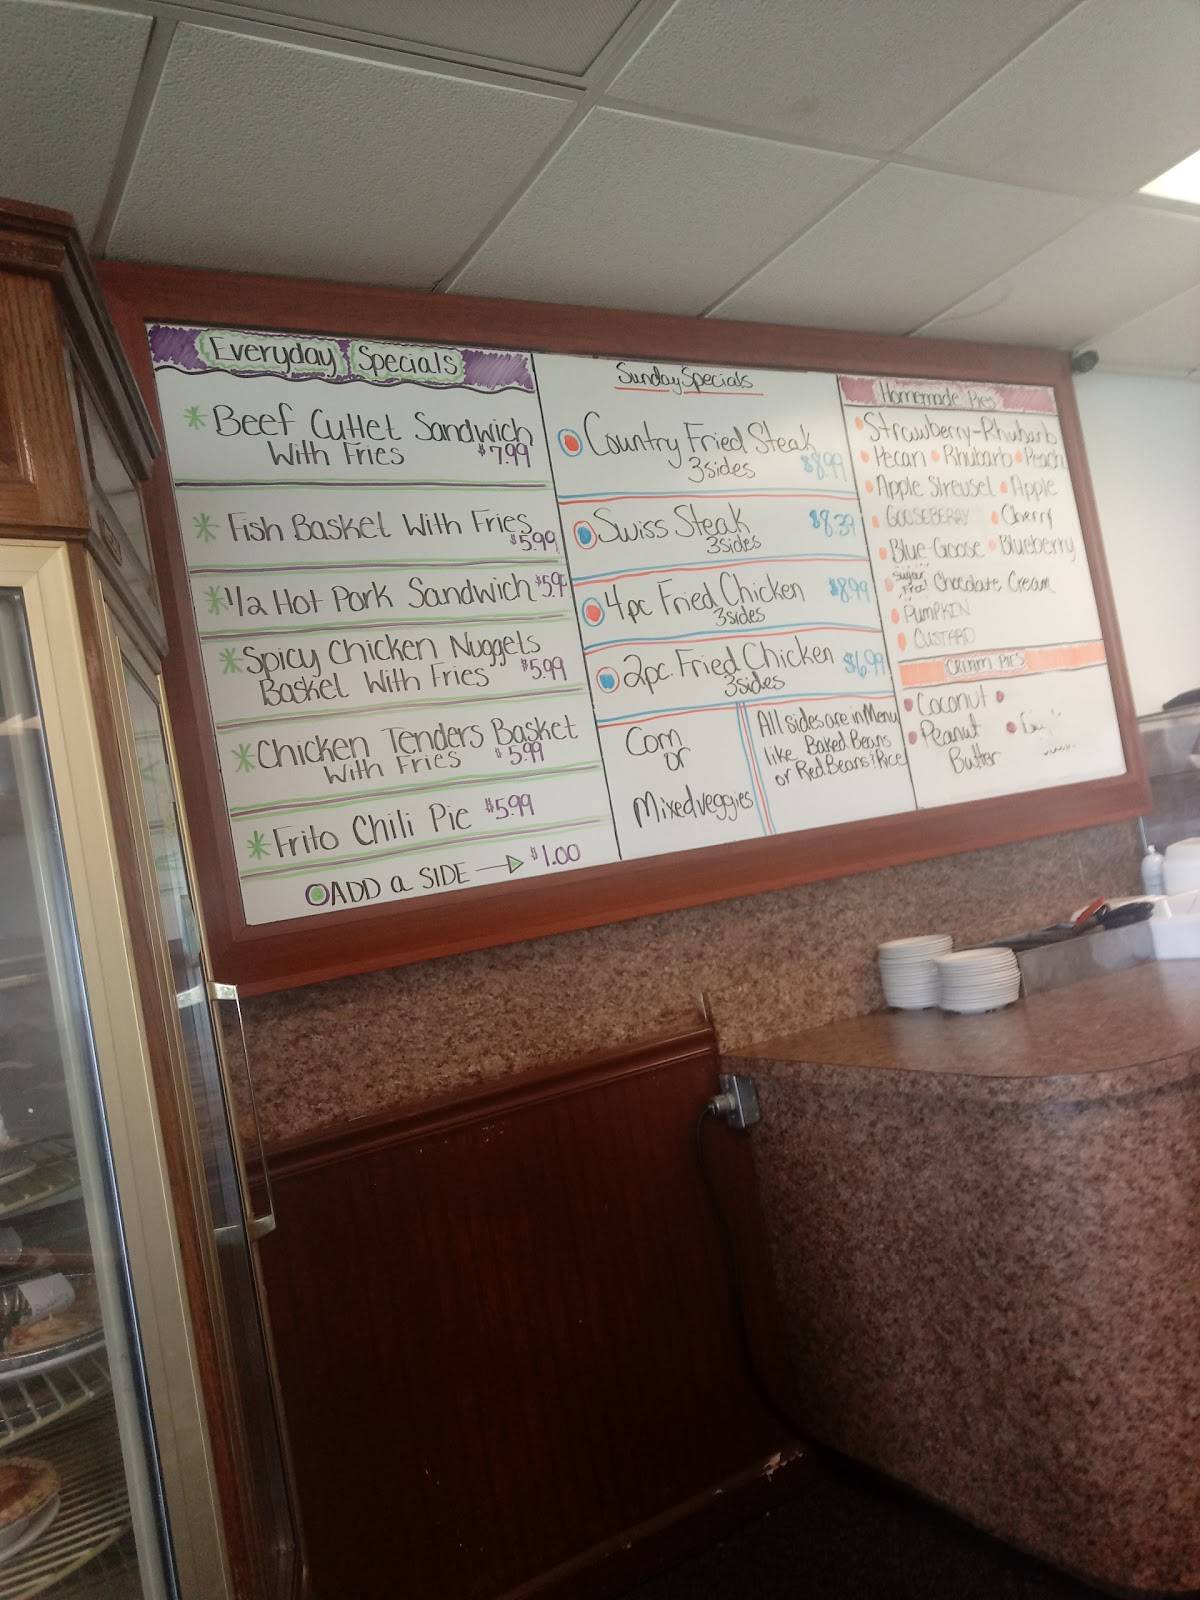 Everyday Specials
Beef Cuttet Sandwich
With Fries $7.99
Fish Basket With Fries
$5.99
1/2 Hot Pork Sandwich $5.99
Spicy Chicken Nuggets
Basket With Fries $5.99
Chicken Tenders Basket
With Fries $5.99
Frito Chili Pie $5.99
ADD a SIDE $1.00
Sunday Specials
Country Fried Steak
3sides $8.99
Swiss Steak $8.39
3sides
4pc Fried Chicken $8.99
3sides
2pc. Fried Chicken $6.99
3sides
Corn
or
Mixed veggies
All sides are in Menu
like Baked Beans
or Red Beans & Rice
Homemade Pies
Strawberry-Rhubarb
Pecan Rhubarb Peach
Apple Streusel Apple
GOOSEBERRY Cherry
Blue Goose Blueberry
Sugar
Free Chocolate Cream
PUMPKIN
CUSTARD
CREAM PIES
Coconut
Peanut
Butter